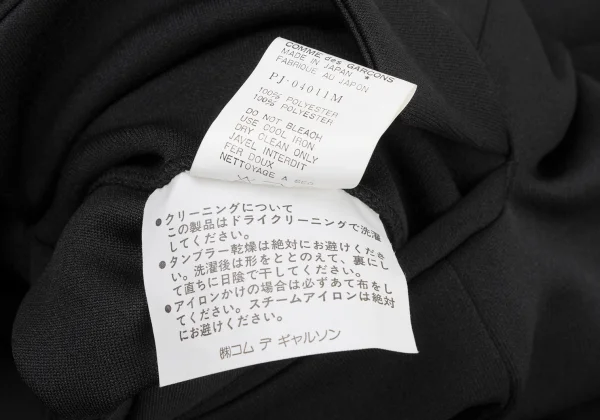 COMME des GARCONS
MADE IN JAPAN *
FABRIQUE AU JAPON
PJ-04011M
100% POLYESTER
100% POLYESTER
DO NOT BLEACH
USE COOL IRON
DRY CLEAN ONLY
JAVEL INTERDIT
FER DOUX
NETTOYAGE A SEC
●クリーニングについて
この製品はドライクリーニングで洗濯
してください。
●タンブラー乾燥は絶対にお避けくださ
い。洗濯後は形をととのえて、裏にし
て直ちに日陰で干してください。
●アイロンかけの場合は必ずあて布をし
てください。スチームアイロンは絶対
にお避けください。
㈱コム デ ギャルソン